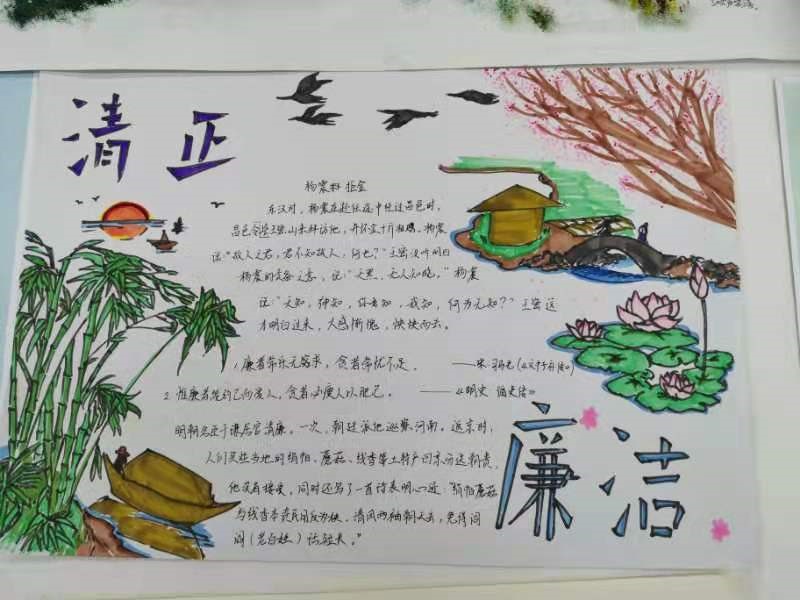 清正
杨震 拒金
东汉时,杨震在赴任途中经过昌邑时,
昌邑令王密 来拜访他,并怀金十斤相赠。杨震
说:“故人知君,君不知故人,何也?”王密没听明白
杨震的责备之意,说:“天黑,无人知晓。”杨震
说:“天知,神知,你知,我知,何为无知?”王密这
才明白过来,大感惭愧,怏怏而去。
1. 廉者常乐无求,贪者常忧不足。 ——
2. 惟廉者能约己而爱人,贪者必朘人以肥己。 ——《明史 循吏传》
明朝名臣于谦居官清廉。一次,朝廷派他巡察河南。返京时,
人们买些当地的绢帕、蘑菇、线香等土特产回京分送朝贵,
他没有接受,同时还写了一首诗表明心迹:“绢帕蘑菇
与线香本资民用反为殃。清风两袖朝天去,免得闾
阎(老百姓)话短长。”
廉洁